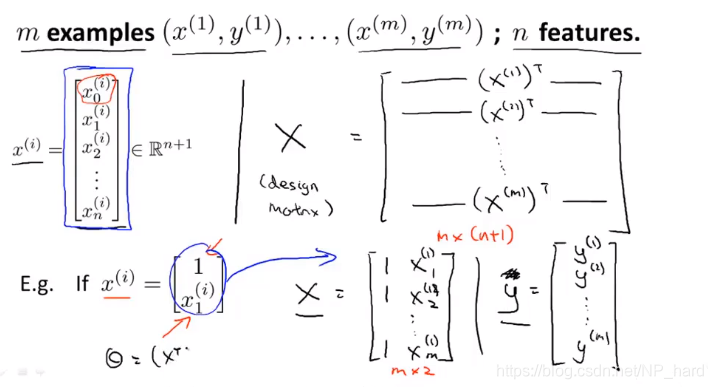 m examples (x^{(1)}, y^{(1)}), ..., (x^{(m)}, y^{(m)}) ; n features.
x^{(i)} = [ x_0^{(i)} x_1^{(i)} x_2^{(i)} ⋮ x_n^{(i)} ] ∈ ℝ^{n+1}
X
(design
matrix)
= [ — (x^{(1)})^T — — (x^{(2)})^T — ⋮ — (x^{(m)})^T — ]
m x (n+1)
E.g. If x^{(i)} = [ 1 x_1^{(i)} ]
X = [ 1 x_1^{(1)} 1 x_2^{(1)} ⋮ 1 x_m^{(1)} ]
m x 2
y = [ y^{(1)} y^{(2)} ⋮ y^{(m)} ]
θ = (x^T
https://blog.csdn.net/NP_hard